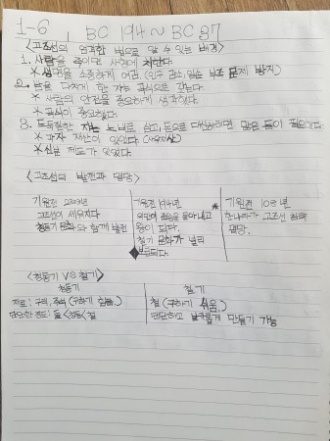 1-6, BC 194 ~ BC 37
<고조선의 엄격한 법으로 알 수 있는 배경>
1. 사람을 죽이면 사형에 처한다.
* 생명을 소중하게 여김. (인구 감소, 문제 방지)
2. 남을 다치게 한 자는 곡식으로 갚는다.
* 사람의 안전을 중요하게 생각했다.
* 곡식이 중요했다.
3. 도둑질한 자는 노비로 삼고, 돈으로 대신하려면 많은 돈이 필요하다.
* 개인 재산이 있었다. (사유재산)
* 신분 제도가 있었다.
<고조선의 발전과 멸망>
기원전 2333년
고조선이 세워지다
청동기 문화와 함께 발전
기원전 194년
위만이 준왕을 몰아내고
왕이 되다.
철기 문화가 널리
보급되다.
기원전 108년
한나라가 고조선
멸망.
<청동기 VS 철기>
청동기
재료: 구리, 주석 (구하기 힘듦)
단단한 정도: 돌<청동<철
철기
철 (구하기 쉬움)
단단하고 날카롭게 만들기 가능